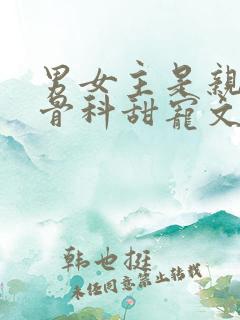 男女主是亲
骨科甜宠文
韩也挺
未经同意禁止转载